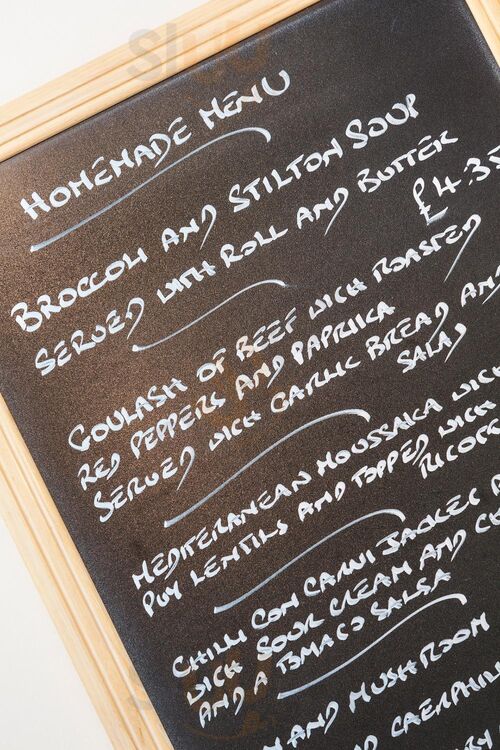 HOMEMADE MENU
BROCCOLI AND STILTON SOUP
SERVED WITH ROLL AND BUTTER
£4.35
GOULASH OF BEEF WITH ROASTED
RED PEPPERS AND PAPRIKA
SERVED WITH GARLIC BREAD AND
SALAD
MEDITERANEAN MOUSSAKA WITH
PUY LENTILS AND TOPPED WITH
RICOTT
CHILLI CON CARNI JACKET P
WITH SOUR CREAM AND CH
AND A TOMATO SALSA
AND MUSHROOM
CAERPHIL